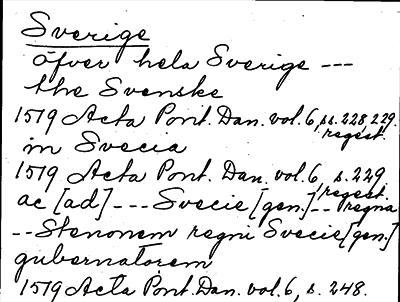 Sverige
öfver hela Sverige ---
the Svenske
1519 Acta Pont. Dan. vol. 6, ss. 228, 229.
regest.
in Svecia
1519 Acta Pont. Dan. vol. 6, s. 229
regest.
ac [ad] --- Svecie [gen.] -- regna
-- Stenonem regni Svecie [gen.]
gubernatorem
1519 Acta Pont. Dan. vol. 6, s. 248.